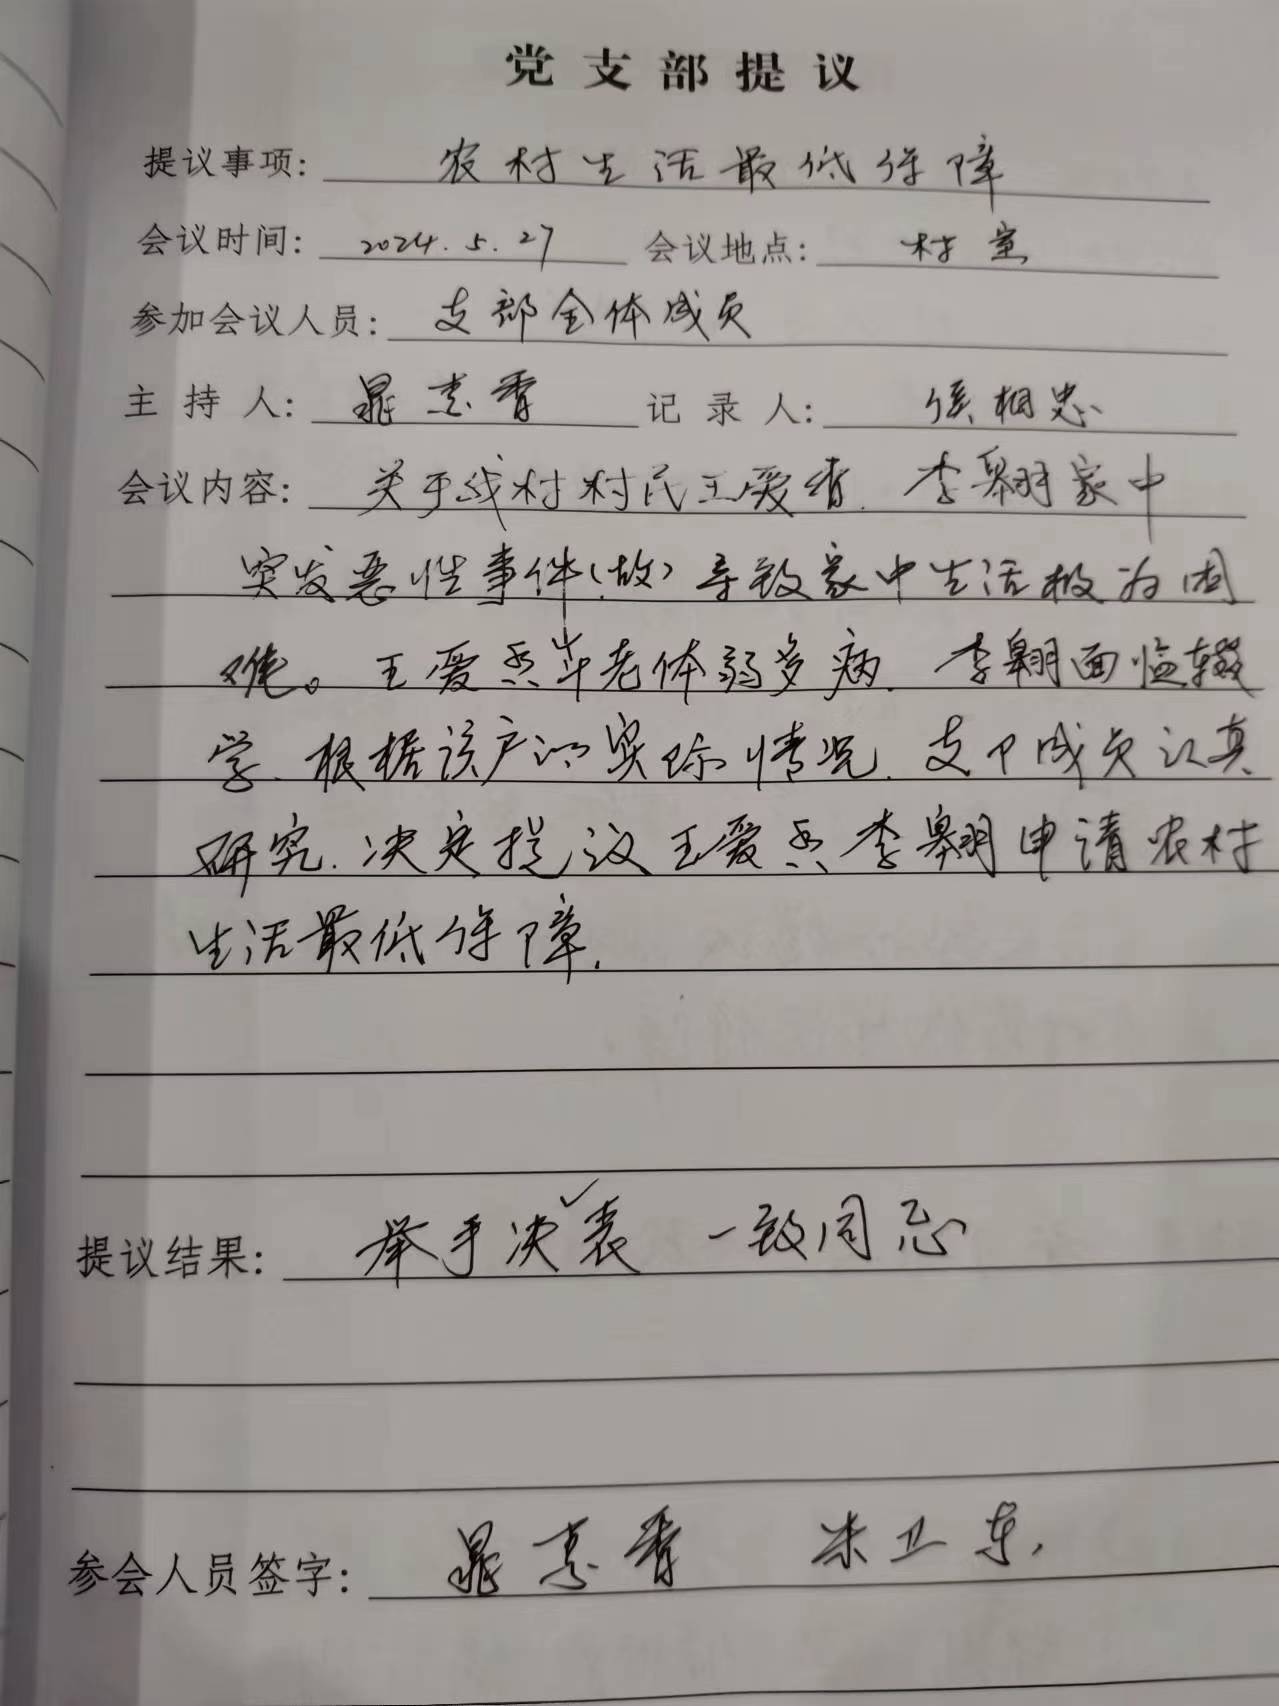 党支部提议
提议事项: 农村生活最低保障
会议时间: 2024.5.27 会议地点: 村室
参加会议人员: 支部全体成员
主持人: 晁素香 记录人: 侯相忠
会议内容: 关于我村村民王爱香.李翱家中
突发恶性事件(故)导致家中生活极为困
难。王爱香年老体弱多病.李翱面临辍
学.根据该户的实际情况.支部成员认真
研究.决定提议王爱香李翱申请农村
生活最低保障.
提议结果: 举手决表 一致同意
参会人员签字: 晁素香 朱卫东